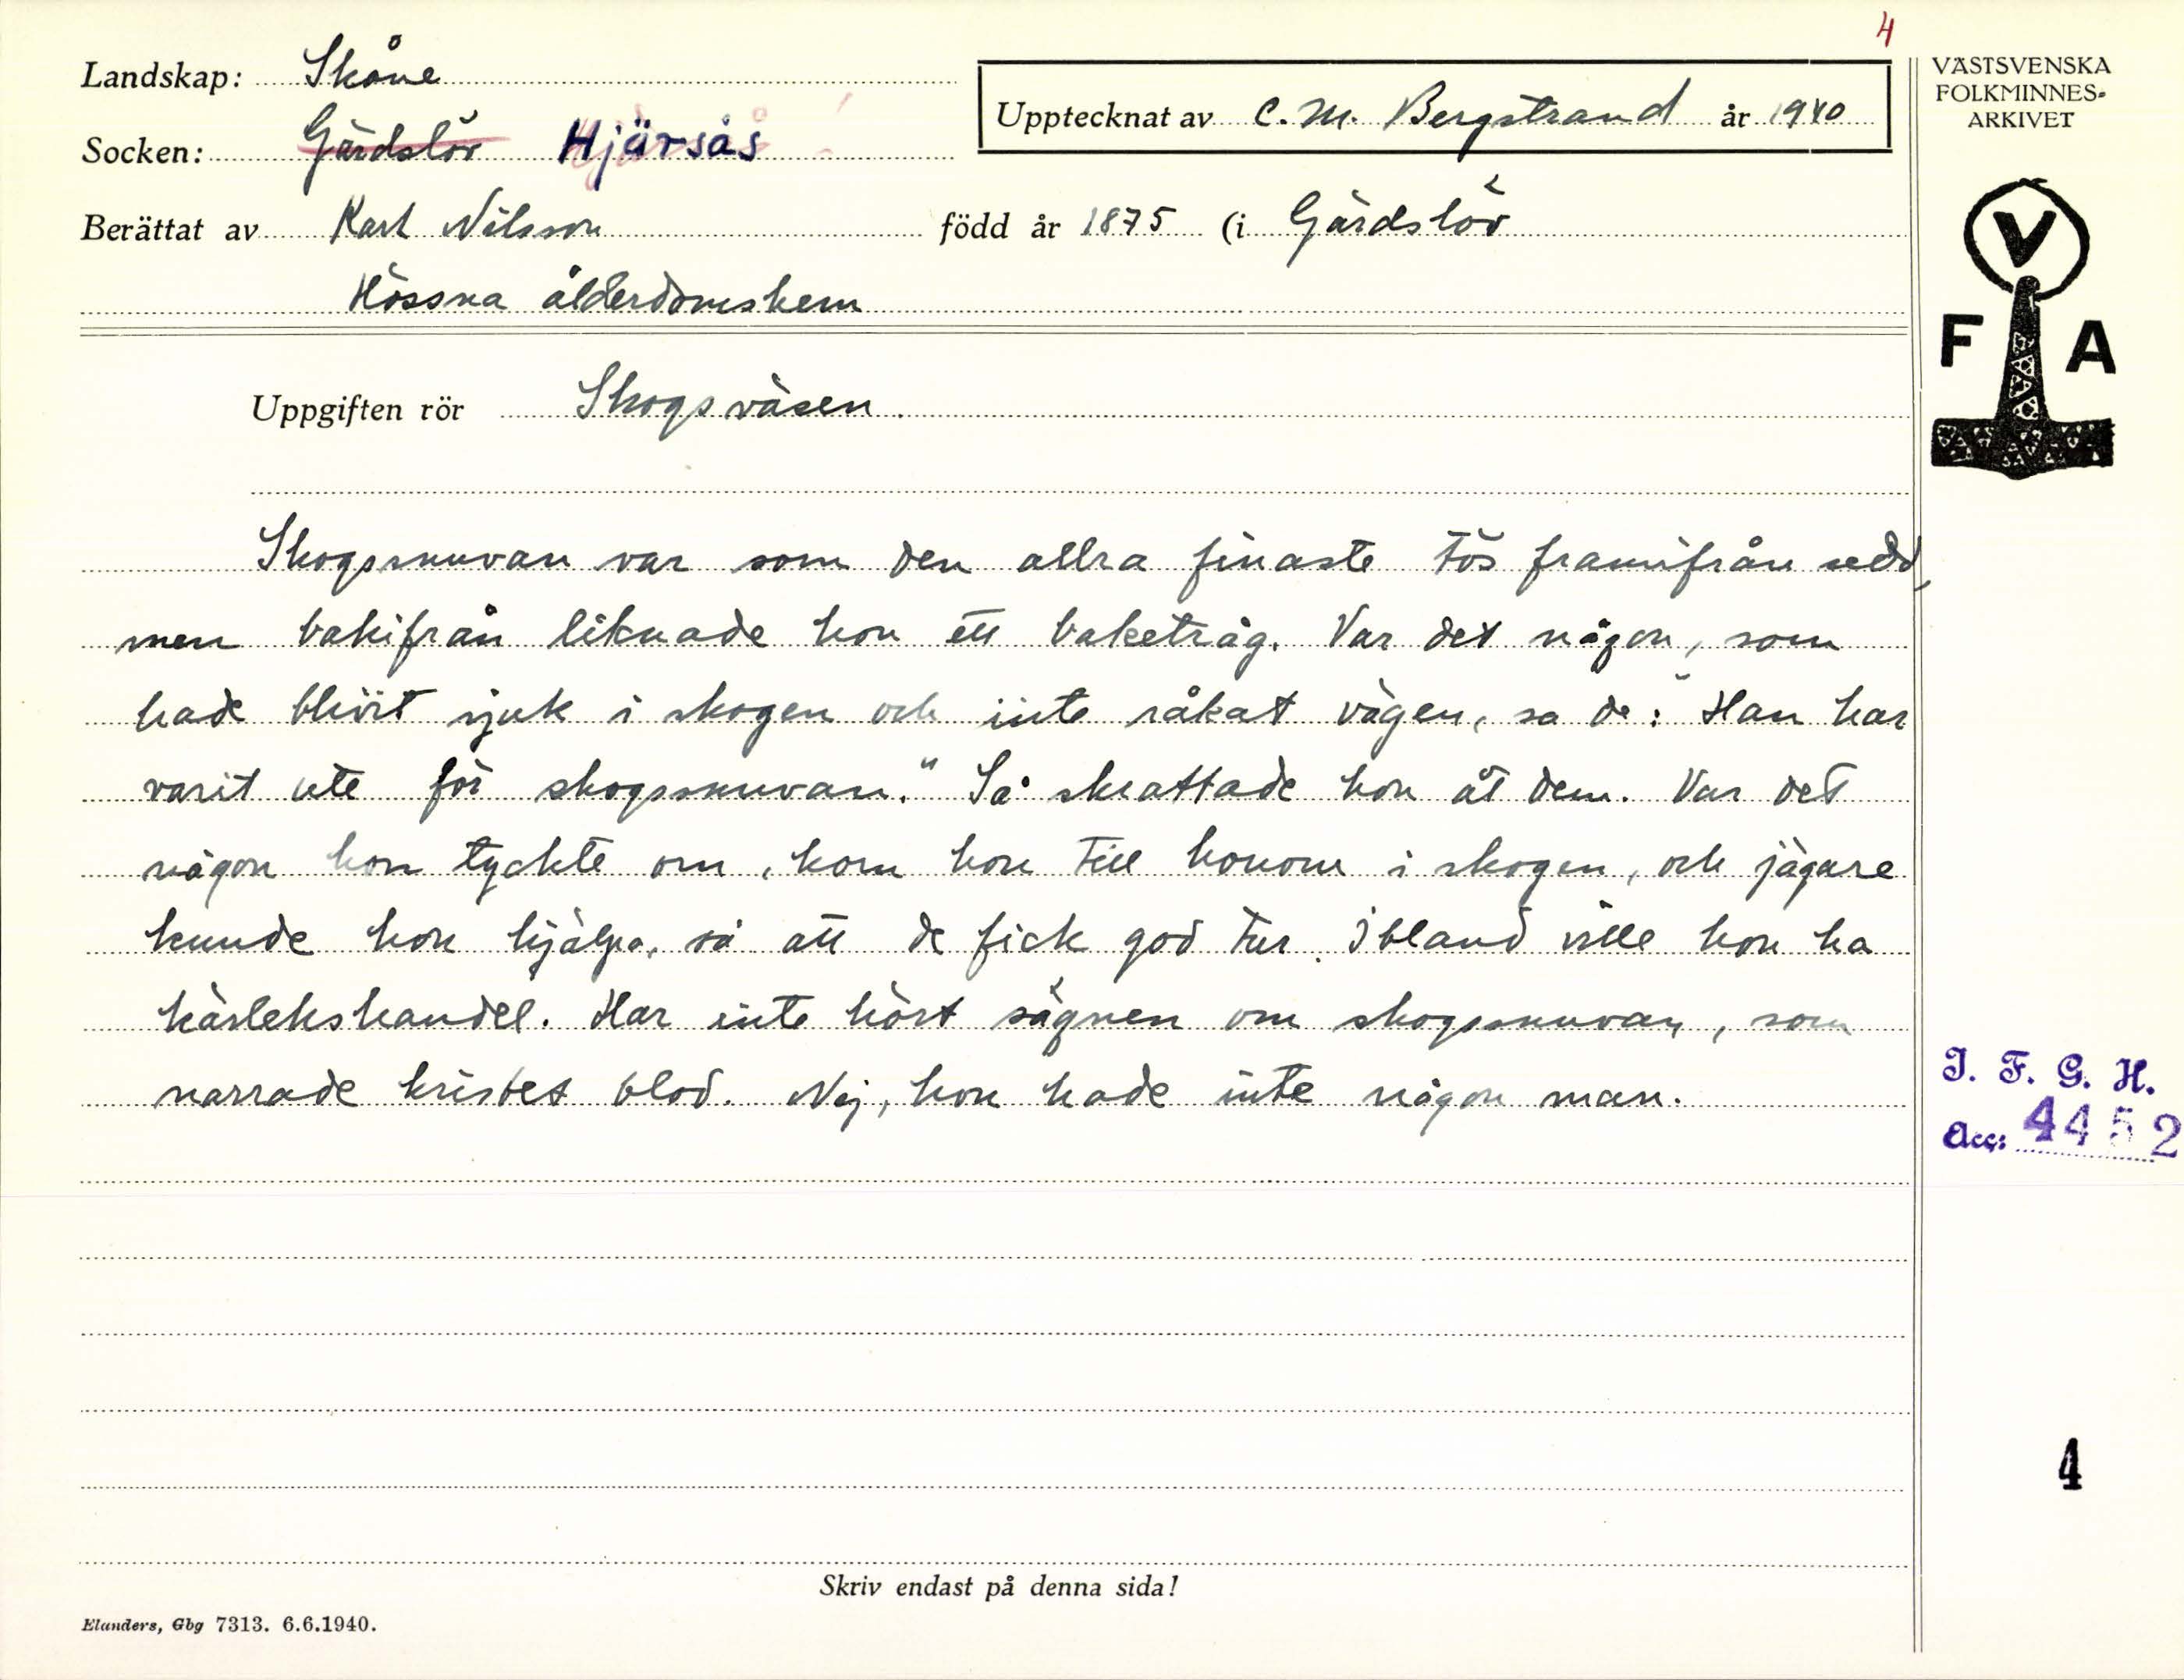 4
Landskap: Skåne
Upptecknat av C. M. Bergstrand år 1940
Socken: Gärdslöv Hjärsås
Berättat av Karl Nilsson född år 1875 (i Gärdslöv
Hössna ålderdomshem
Uppgiften rör Skogsväsen.
Skogssnuvan var som den allra finaste tös framifrån sedd,
men bakifrån liknade hon ett baketråg. Var det någon, som
hade blivit sjuk i skogen och inte råkat vägen, sa de: "Han har
varit ute för skogssnuvan." Så skrattade hon åt dem. Var det
någon hon tyckte om, kom hon till honom i skogen, och jägare
kunde hon hjälpa, så att de fick god tur. Ibland ville hon ha
kärlekshandel. Har inte hört sägnen om skogssnuvan, som
narrade kristet blod. Nej, hon hade inte någon man.
Skriv endast på denna sida!
Elanders, Gbg 7313. 6.6.1940.
VÄSTSVENSKA
FOLKMINNES-
ARKIVET
V
F A
I. F. G. H.
Acc: 4452
4